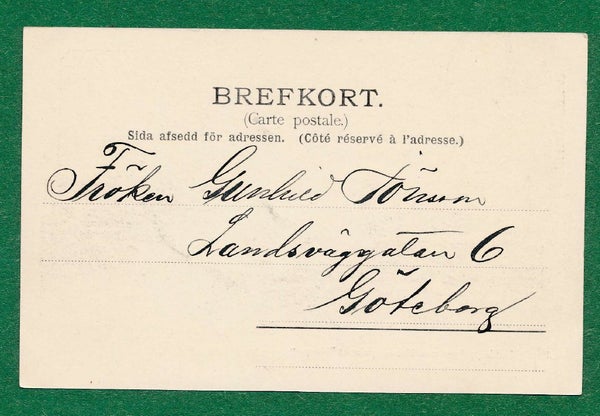 BREFKORT.
(Carte postale.)
Sida afsedd för adressen. (Côté réservé à l'adresse.)
Fröken Gunhild Jönsson
Landsväggatan 6
Göteborg